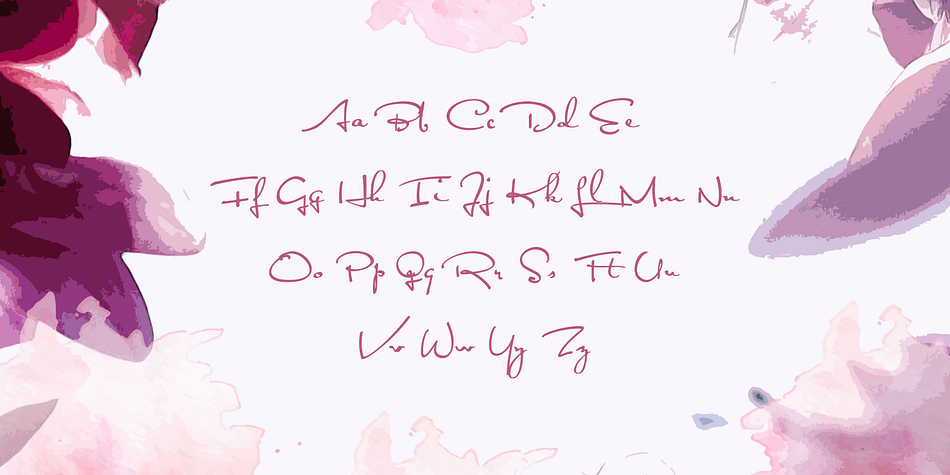 Aa Bb Cc Dd Ee
Ff Gg Hh Ii Jj Kk Ll Mm Nn
Oo Pp Qq Rr Ss Tt Uu
Vv Ww Yy Zz